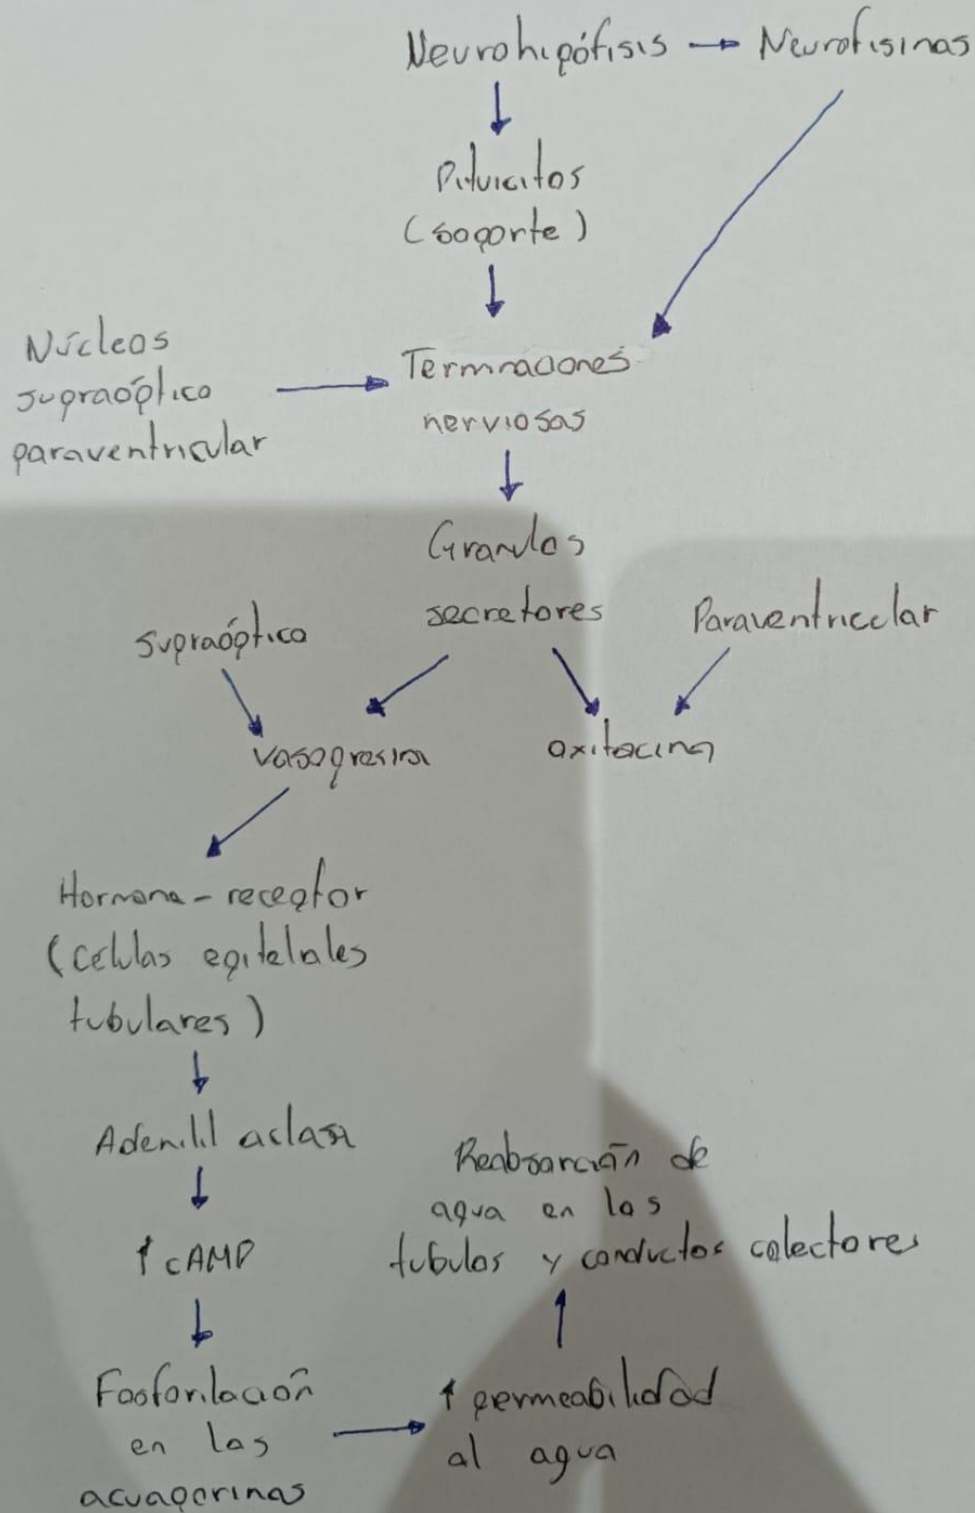 Neurohipófisis → Neurofisinas
Pituicitos
(soporte)
Núcleos
supraóptico
paraventricular
Terminaciones
nerviosas
Granulos
secretores
supraóptico
Paraventricular
vasopresina
oxitocina
Hormona - receptor
(Células epiteliales
tubulares)
Adenilil ciclasa
↑ cAMP
Fosforilación
en las
acuaporinas
↑ permeabilidad
al agua
Reabsorción de
agua en los
tubulos y conductos colectores